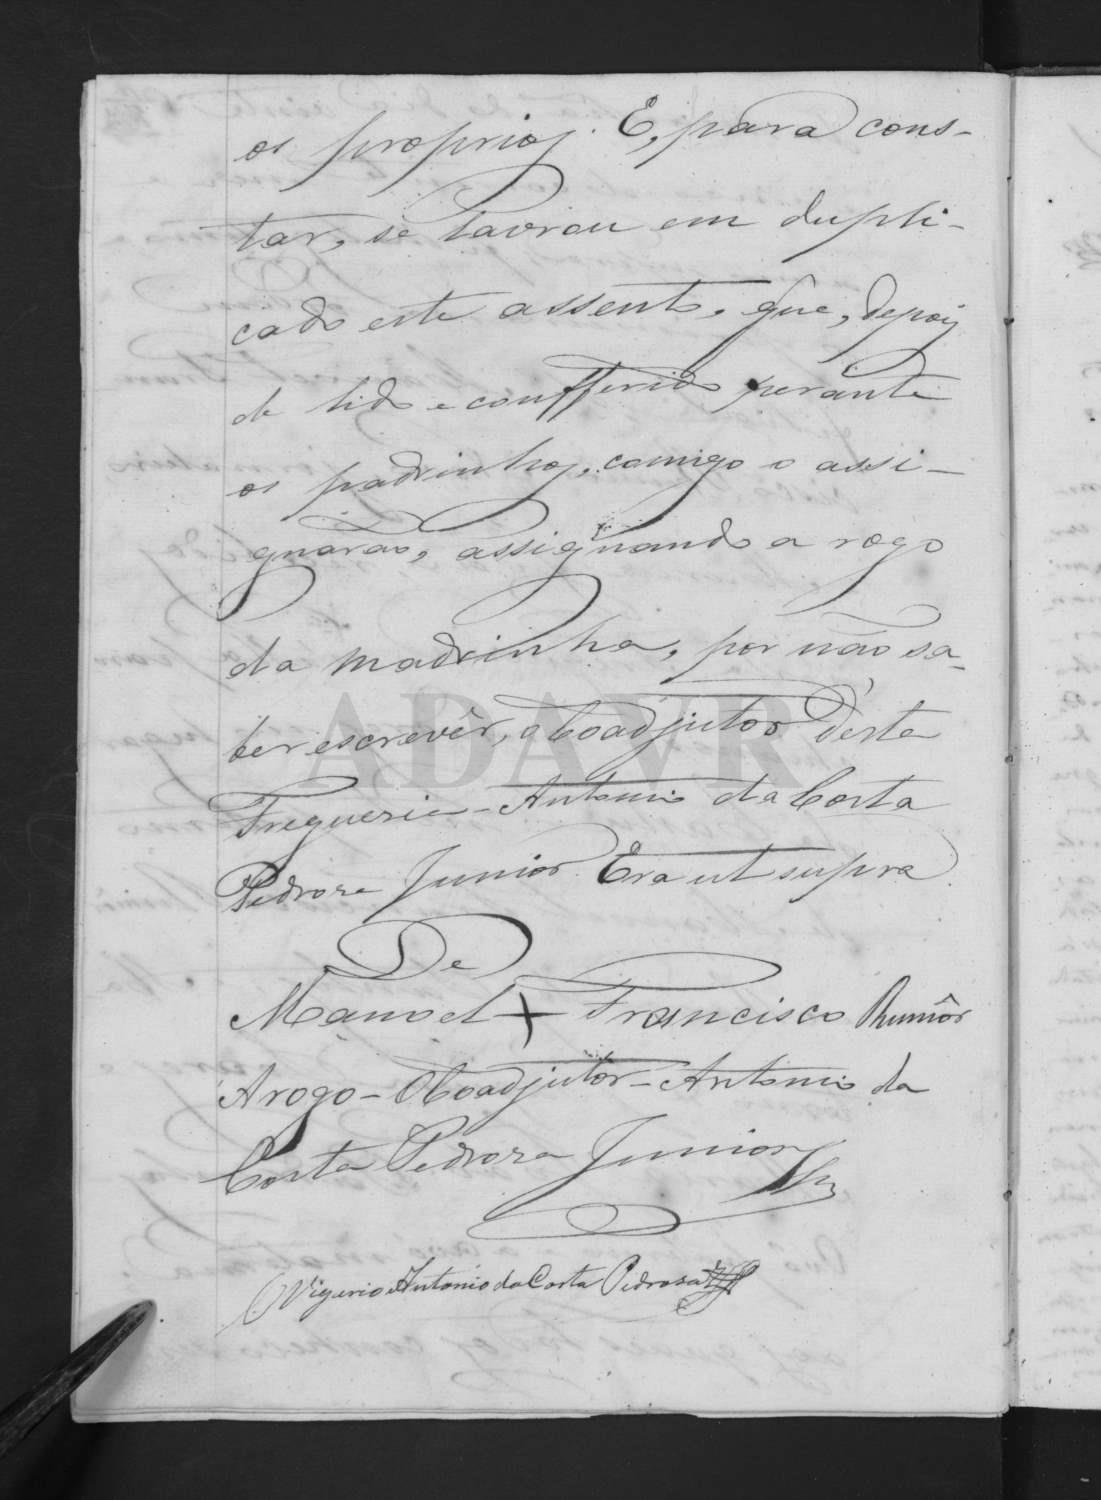 os proprios. E, para cons-
tar, se lavrou em dupli-
cado este assento, que, depois
de lido e confferido perante
os padrinhos, comigo o assi-
gnarão, assignando a rogo
da madrinha, por não sa-
ber escrevêr, o Coadjutor d'esta
Freguesia - Antonio da Costa
Pedroza Junior. Era ut supra.
De
Manoel + Francisco
A rogo - O Coadjutor - Antonio da
Costa Pedroza Junior
O Vigario Antonio da Costa Pedroza
ADAVR